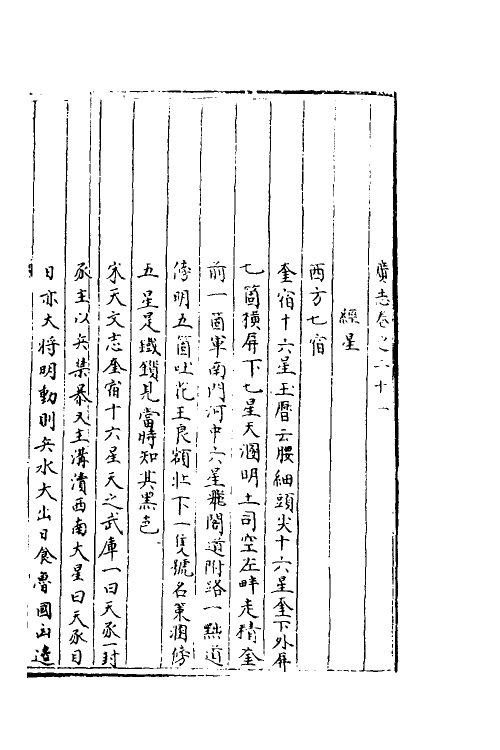 廣志卷之二十一
經星
西方七宿
奎宿十六星王曆云腰細頭尖十六星奎下外屏
七箇橫屏下七星天溷明土司空左畔走精奎
前一箇軍南門河中六星飛閣道附路一點道
傍明五箇吐花王良額壯下一隻號名策溷傍
五星是鐵鎖見當時知其黑色
宋天文志奎宿十六星天之武庫一曰天豕一封
豕主以兵禁暴又主溝瀆西南大星曰天豕目
日亦大將明動則兵水大出日食魯國凶邊